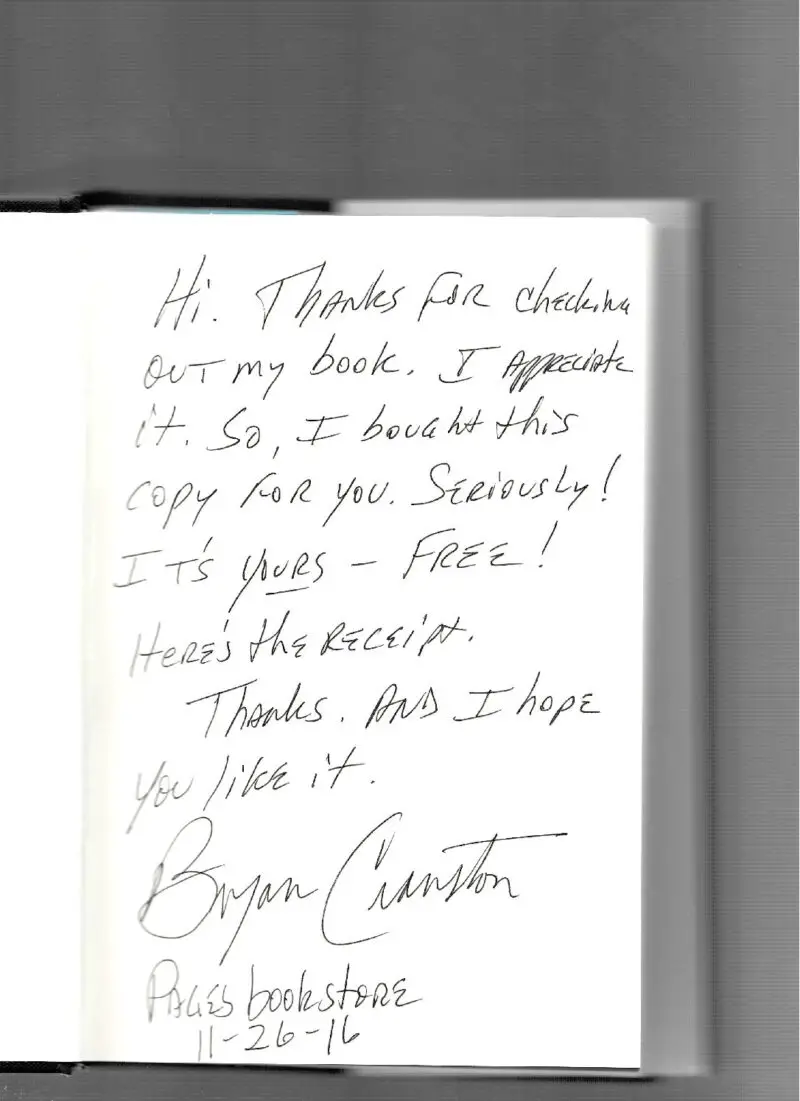 Hi. Thanks for checking
out my book. I appreciate
it. So, I bought this
copy for you. Seriously!
It's yours – Free!
Here's the receipt.
Thanks. And I hope
you like it.
Bryan Cranston
Pages bookstore
11-26-16